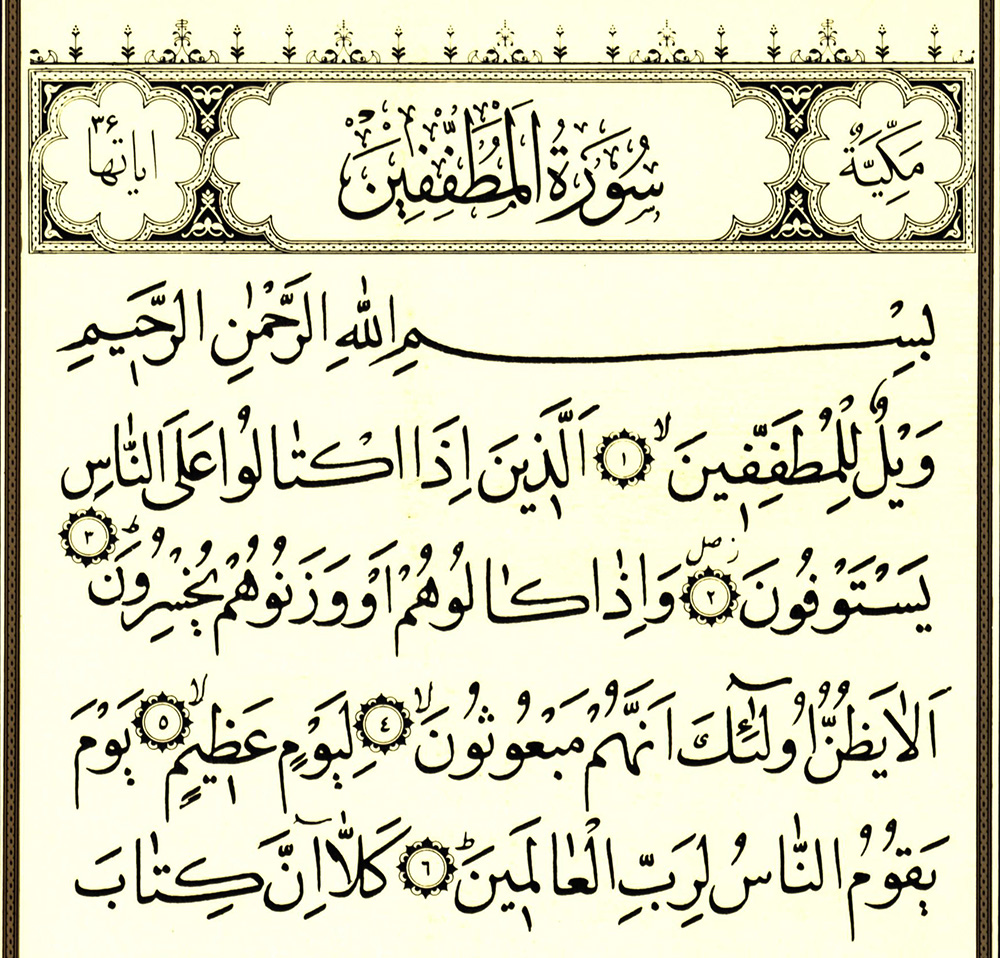 مَكِّيَّةٌ
سُورَةُ الْمُطَفِّفِينَ
اياتها ۳۶
بِسْمِ اللّٰهِ الرَّحْمٰنِ الرَّحٖيمِ
وَيْلٌ لِلْمُطَفِّفٖينَ ۙ ﴿١﴾ اَلَّذٖينَ اِذَا اكْتَالُوا عَلَى النَّاسِ
يَسْتَوْفُونَ ﴿٢﴾ ز صل وَاِذَا كَالُوهُمْ اَوْ وَزَنُوهُمْ يُخْسِرُونَ ؕ ﴿٣﴾
اَلَا يَظُنُّ اُولٰٓئِكَ اَنَّهُمْ مَبْعُوثُونَ ۙ ﴿٤﴾ لِيَوْمٍ عَظٖيمٍ ۙ ﴿٥﴾ يَوْمَ
يَقُومُ النَّاسُ لِرَبِّ الْعَالَمٖينَ ؕ ﴿٦﴾ كَلَّٓا اِنَّ كِتَابَ